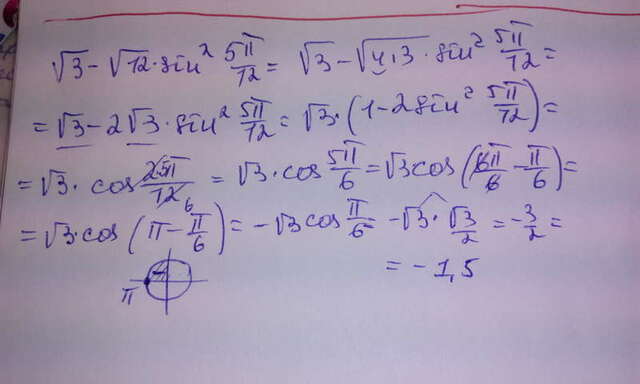 √3 - √12 · sin² 5π/12 = √3 - √4·3 · sin² 5π/12 =
= √3 - 2√3 · sin² 5π/12 = √3 · (1 - 2 sin² 5π/12) =
= √3 · cos 2·5π/12 6 = √3 · cos 5π/6 = √3 cos (6π/6 - π/6) =
= √3 · cos (π - π/6) = - √3 cos π/6 - √3 · √3/2 = -3/2 =
π
= -1,5